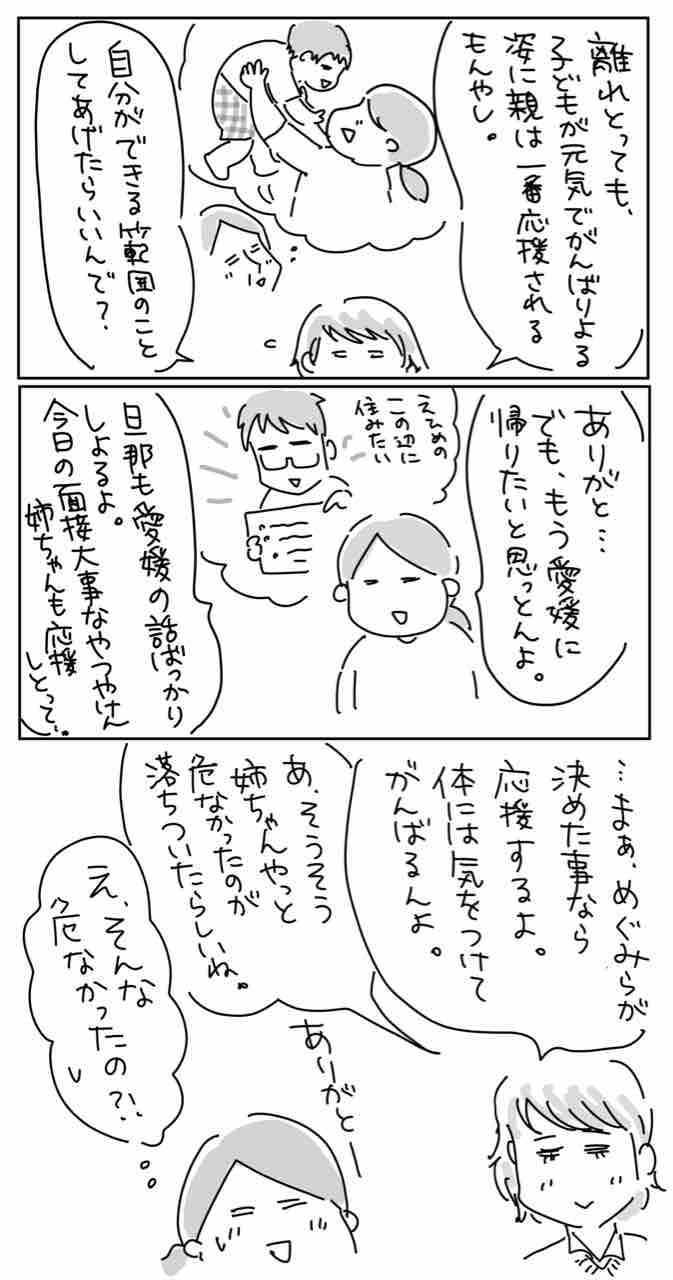 離れとっても、
子どもが元気でがんばりよる
姿に親は一番応援される
もんやし。
自分ができる範囲のこと
してあげたらいいんで？
ありがと…
でも、もう愛媛に
帰りたいと思っとんよ。
えひめの
この辺に
住みたい
旦那も愛媛の話ばっかり
しよるよ。
今日の面接大事なやつやけん
姉ちゃんも応援
しとって…。
…まぁ、めぐみらが
決めた事なら
応援するよ。
体には気をつけて
がんばるんよ。
あ、そうそう
姉ちゃんやっと
危なかったのが
落ちついたらしいね。
ありがとー
え、そんな
危なかったの？！